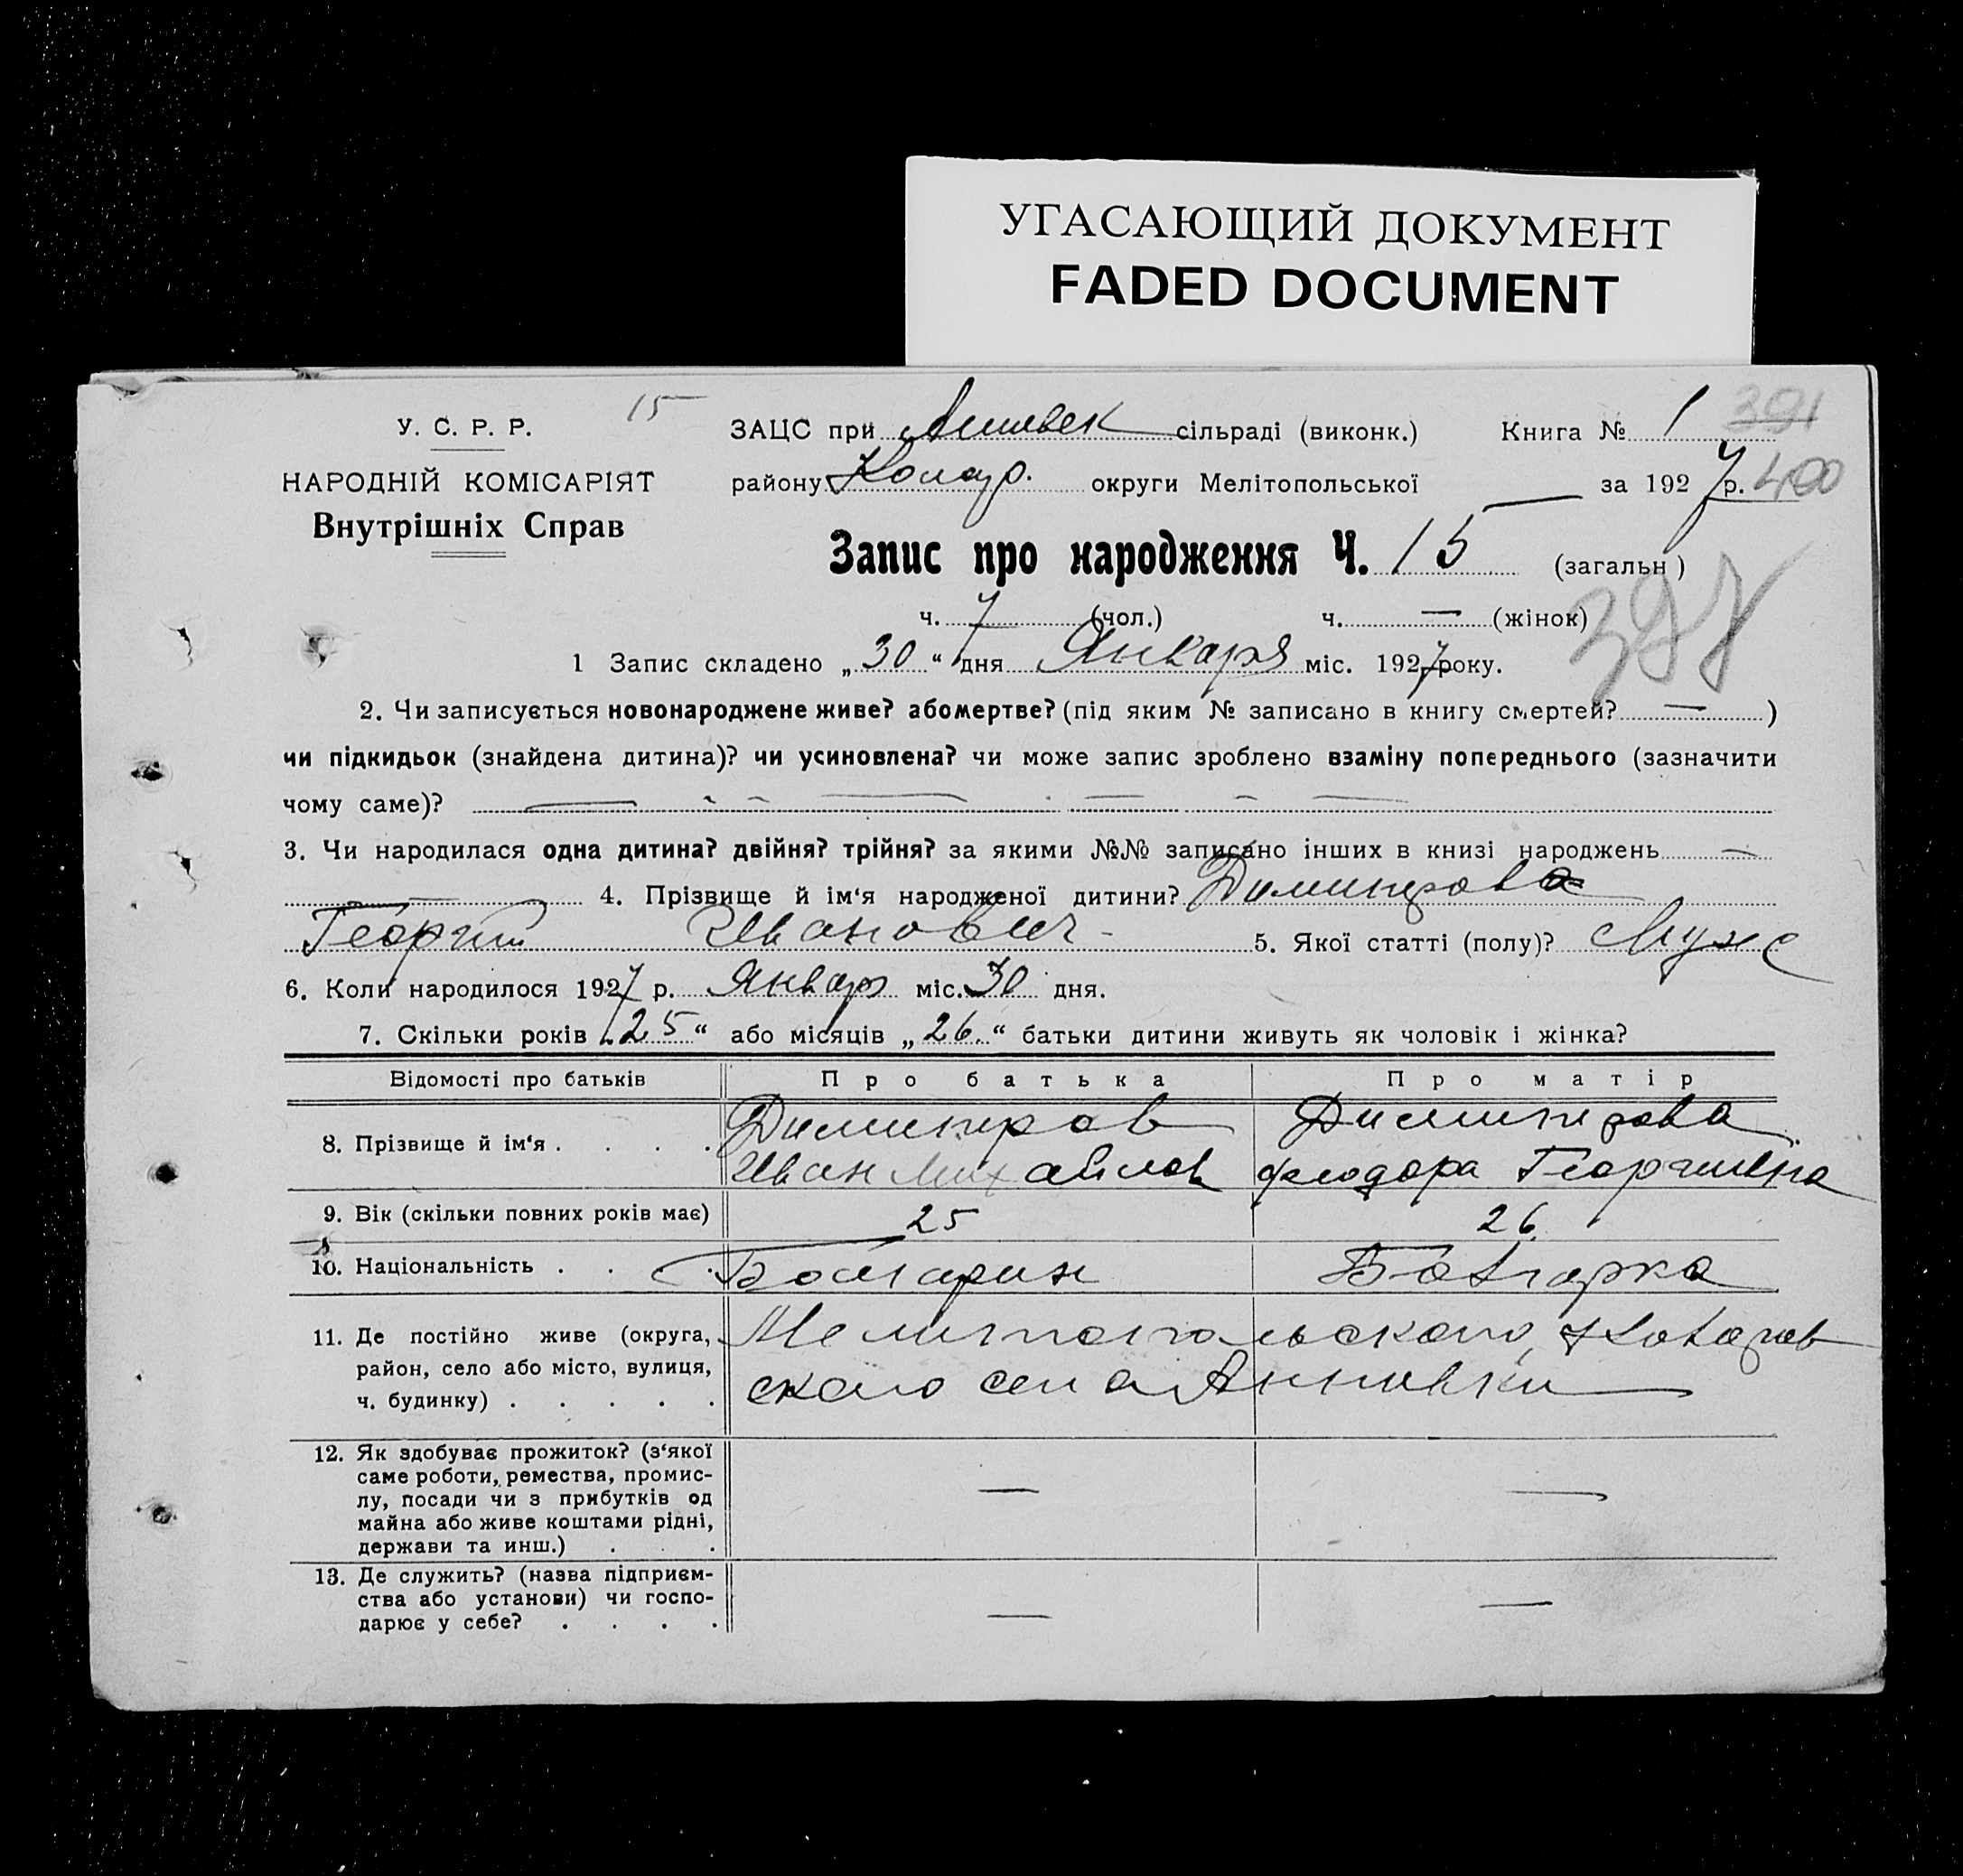 УГАСАЮЩИЙ ДОКУМЕНТ
FADED DOCUMENT
У. С. Р. Р.
15
ЗАЦС при сільраді (виконк.) Книга № 1 391
НАРОДНІЙ КОМІСАРІЯТ
району Колар. округи Мелітопольської — за 1927 р. 400
Внутрішніх Справ
Запис про народження Ч. 15 (загальн)
ч. 7 (чол.) ч. — (жінок)
1 Запис складено „30“ дня Января міс. 1927 року.
2. Чи записується новонароджене живе? або мертве? (під яким № записано в книгу смертей? — )
чи підкидьок (знайдена дитина)? чи усиновлена? чи може запис зроблено взаміну попереднього (зазначити
чому саме)?
3. Чи народилася одна дитина? двійня? трійня? за якими №№ записано інших в книзі народжень —
4. Прізвище й ім‘я народженої дитини? Димитрова
Георгий Иванович 5. Якої статті (полу)? Муж
6. Коли народилося 1927 р. Январ міс. 30 дня.
7. Скільки років „25“ або місяців „26.“ батьки дитини живуть як чоловік і жінка?
Відомості про батьків Про батька Про матір
8. Прізвище й ім‘я . . . . Димитров Димитрова
Иван Михайлов Феодора Георгиевна
9. Вік (скільки повних років має) 25 26.
10. Національність . . . Болгарин Болгарка
11. Де постійно живе (округа, район, село або місто, вулиця, ч. будинку) . . . . . Мелитопольского, Коларов
ского села Анновки
12. Як здобуває прожиток? (з‘якої
саме роботи, ремества, промис-
лу, посади чи з прибутків од
майна або живе коштами рідні,
держави та инш.) . . . — —
13. Де служить? (назва підприєм-
ства або установи) чи госпо-
дарює у себе? . . . . — —